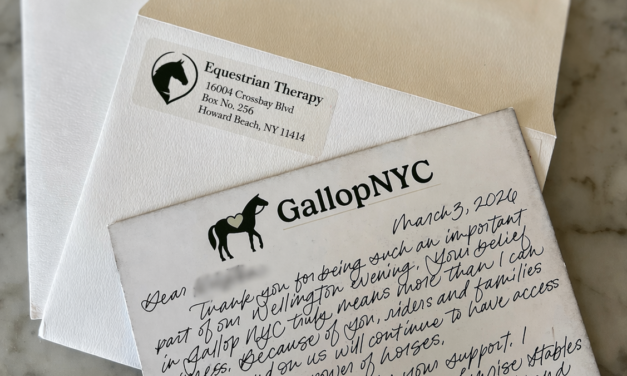 Equestrian Therapy
16004 Crossbay Blvd
Box No. 256
Howard Beach, NY 11414
GallopNYC
March 3, 2026
Dear
Thank you for being such an important
part of our Wellington evening. Your belief
in Gallop NYC truly means more than I can
ress. Because of you, riders and families
nd on us will continue to have access
ower of horses.
your support. I
Stables
nd